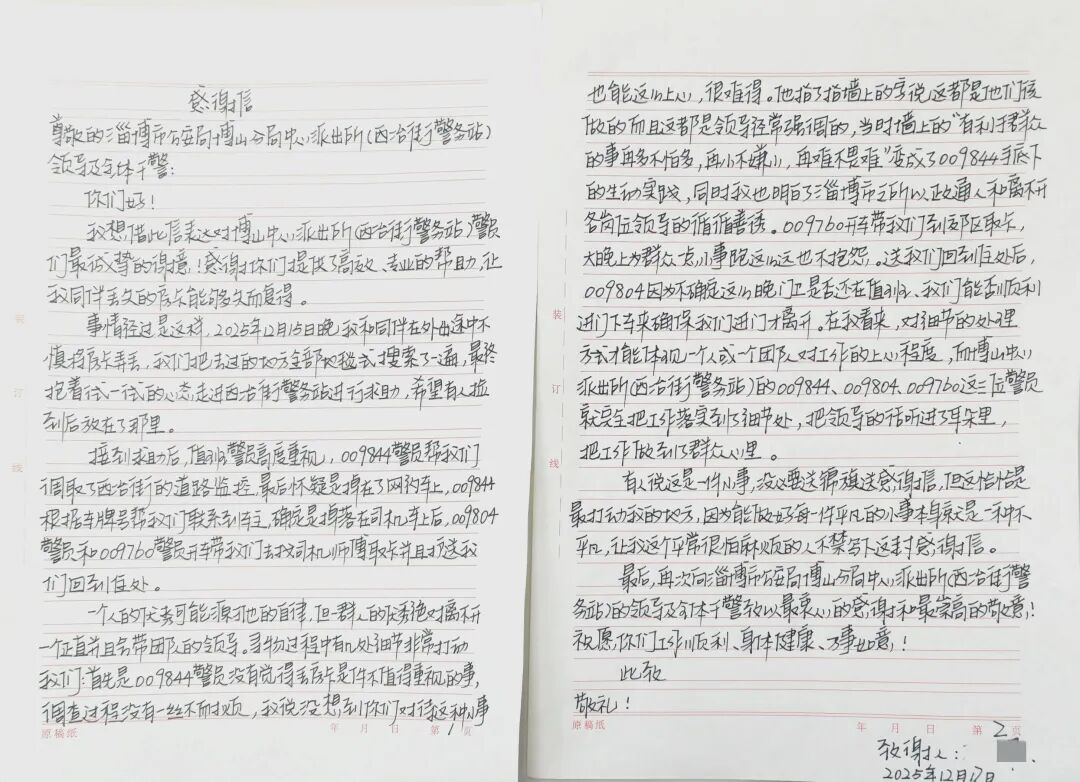 感谢信
尊敬的淄博市公安局博山分局中心派出所(西冶街警务站)
领导及全体干警:
你们好!
我想借此信表达对博山中心派出所(西冶街警务站)警员
们最诚挚的谢意!感谢你们提供了高效、专业的帮助,让
我同伴丢失的房卡能够失而复得。
事情经过是这样,2025年12月15日晚我和同伴在外出途中不
慎将房卡弄丢,我们把去过的地方全部地毯式搜索了一遍,最终
抱着试一试的心态走进西冶街警务站进行求助,希望有人捡
到后放在了那里。
接到求助后,值班警员高度重视,009844警员帮我们
调取了西冶街的道路监控,最后怀疑是掉在了网约车上,009844
根据车牌号帮我们联系到车主,确定是掉落在司机车上后,009804
警员和009760警员开车带我们去找司机师傅取卡并且护送我
们回到住处。
一个人的优秀可能源于他的自律,但一群人的优秀绝对离不开
一个正直并且会带团队的领导。寻物过程中有几处细节非常打动
我们:首先是009844警员没有觉得丢房卡是件不值得重视的事,
调查过程没有一丝不耐烦,我说没想到你们对待这种小事
原稿纸 年 月 日 第1页
装
订
线
也能这么上心,很难得。他指了指墙上的字说这都是他们该
做的而且这都是领导经常强调的,当时墙上的“有利于群众
的事再多不怕多,再小不嫌小,再难不畏难”变成了009844手底下
的生动实践,同时我也明白了淄博市之所以政通人和离不开
各岗位领导的循循善诱。009760开车带我们到郊区取卡,
大晚上为群众一点小事跑这么远也不抱怨。送我们回到住处后,
009804因为不确定这么晚门卫是否还在值班、我们能否顺利
进门下车来确保我们进门才离开。在我看来,对细节的处理
方式才能体现一个人或一个团队对工作的上心程度,而博山中心
派出所(西冶街警务站)的009844、009804、009760这三位警员
就完全把工作落实到了细节处,把领导的话听进了耳朵里,
把工作做到了群众心里。
有人说这是一件小事,没必要送锦旗送感谢信,但这恰恰是
最打动我的地方,因为能做好每一件平凡的小事本身就是一种不
平凡,让我这个平常很怕麻烦的人不禁写下这封感谢信。
最后,再次向淄博市公安局博山分局中心派出所(西冶街警
务站)的领导及全体干警致以最衷心的感谢和最崇高的敬意!
祝愿你们工作顺利、身体健康、万事如意!
此致
敬礼!
原稿纸 年 月 日 第2页
装
订
线
致谢人:
2025年12月17日